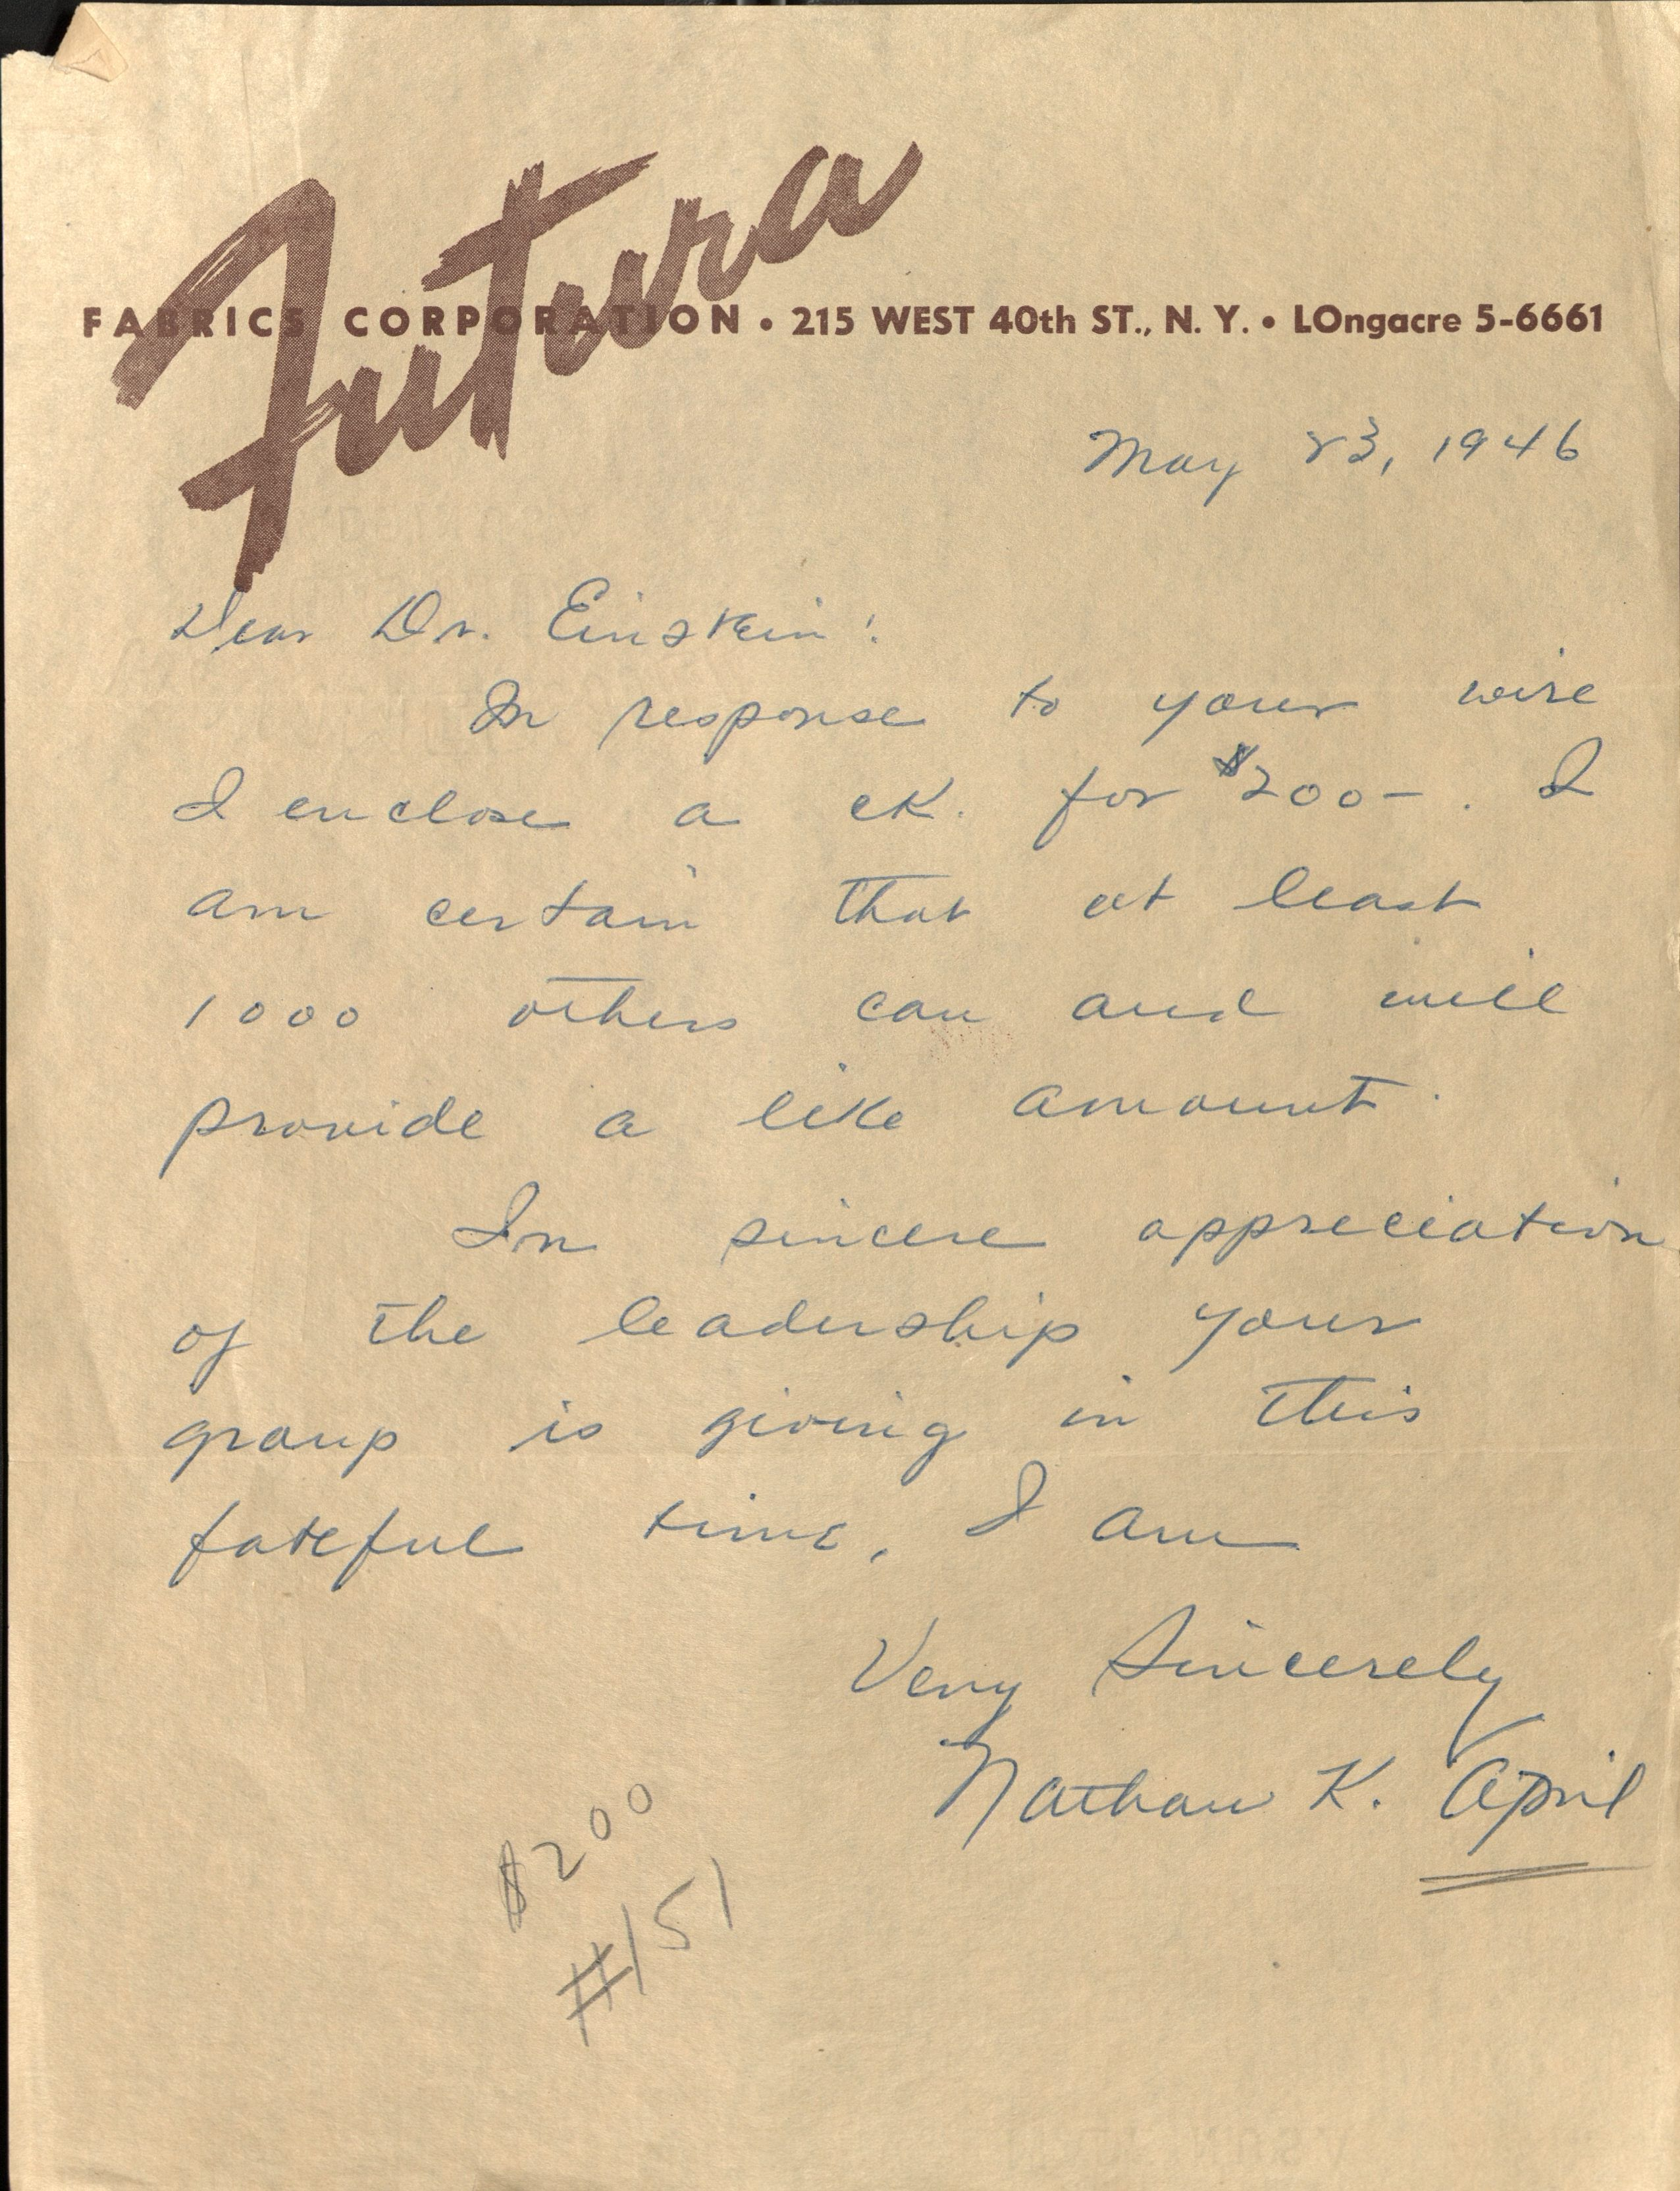 Futura
FABRICS CORPORATION • 215 WEST 40th ST., N. Y. • LOngacre 5-6661
May 23, 1946
Dear Dr. Einstein:
In response to your wire
I enclose a ck. for $200-. I
am certain that at least
1000 others can and will
provide a like amount.
In sincere appreciation
of the leadership your
group is giving in this
fateful time, I am
Very Sincerely
Nathan K. April
$200
#151